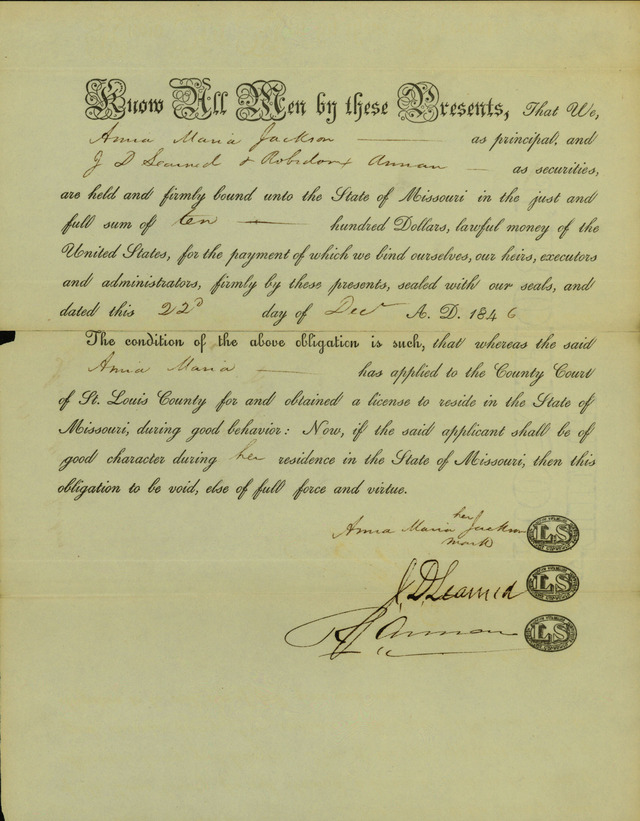 Know All Men by these Presents, That We,
Anna Maria Jackson as principal, and
J D Learned & Robidoux Annan as securities,
are held and firmly bound unto the State of Missouri in the just and
full sum of ten hundred Dollars, lawful money of the
United States, for the payment of which we bind ourselves, our heirs, executors
and administrators, firmly by these presents, sealed with our seals, and
dated this 22d day of Decr A. D. 1846
The condition of the above obligation is such, that whereas the said
Anna Maria has applied to the County Court
of St. Louis County for and obtained a license to reside in the State of
Missouri, during good behavior: Now, if the said applicant shall be of
good character during her residence in the State of Missouri, then this
obligation to be void, else of full force and virtue.
her
Anna Maria Jackson LS
mark
J. D. Learned LS
Annan LS